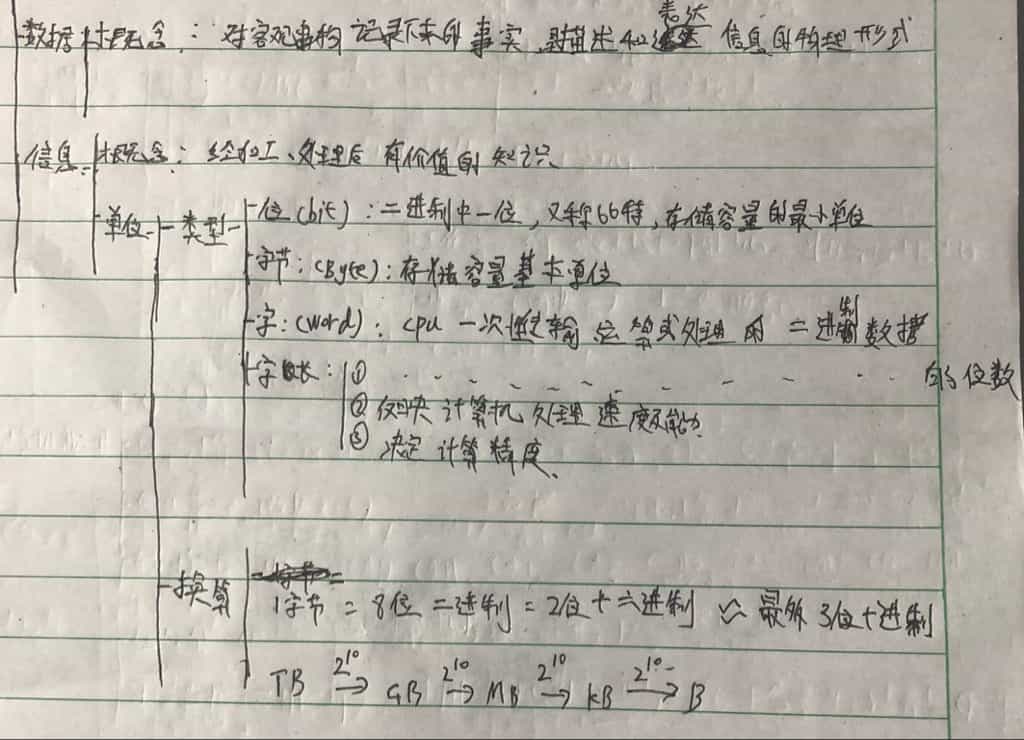 表达
数据 概念：对客观事物记录下来的事实，是描述和 信息的物理形式
信息 概念：经加工、处理后有价值的知识
单位 类型 位(bit)：二进制中一位，又称bb特，存储容量的最小单位
字节：(Byte)：存储容量基本单位
字：(word)：cpu一次性传输、运算或处理的二进制数据
字长：① 的位数
② 反映计算机处理速度及能力
③ 决定计算精度、
换算
1字节 = 8位二进制 = 2位十六进制 ≈ 最多3位十进制
TB 2^10→ GB 2^10→ MB 2^10→ KB 2^10→ B